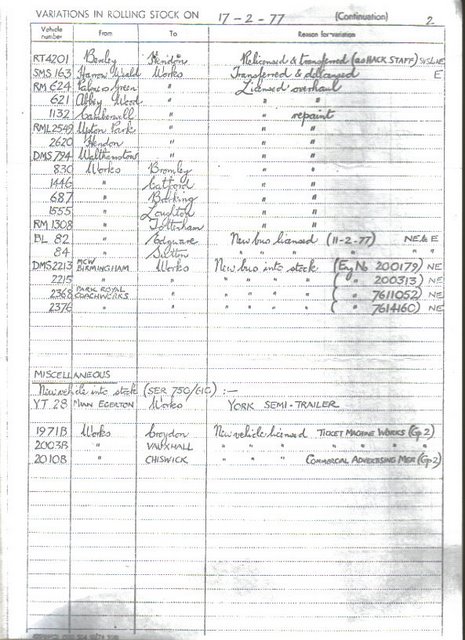 VARIATIONS IN ROLLING STOCK ON 17-2-77 (Continuation) 2
Vehicle number From To Reason for variation
RT4201 Bromley Hendon Relicensed & transferred (as HACK STAFF) NE
SMS.163 Harrow Weald Works Transferred & delicensed E
RM 624 Palmers Green " Licensed overhaul
621 Abbey Wood " " "
1132 Camberwell " " repaint
RML2549 Upton Park " " "
2620 Hendon " " "
DMS 794 Walthamstow " " "
830 Works Bromley " "
1446 " Catford " "
687 " Barking " "
1555 " Loughton " "
RM 1308 " Tottenham " "
BL 82 " Edgware New bus licensed (11-2-77) NE & E
84 " Sutton " " " " "
DMS2213 MCW BIRMINGHAM Works New bus into stock (Eng No 200179) NE
2215 " " " " " " ( " 200313) NE
2368 PARK ROYAL COACHWORKS " " " " " ( " 7611052) NE
2376 " " " " " " ( " 7614160) NE
MISCELLANEOUS
New vehicle into stock (SER 750/61C) :—
YT.28 MAN EGERTON Works YORK SEMI-TRAILER
1971B Works Croydon New vehicle licensed TICKET MACHINE WORKS (Gp 2)
2003B " VAUXHALL " " " " " "
2010B " CHISWICK " " " COMMERCIAL ADVERTISING MER (Gp 2)